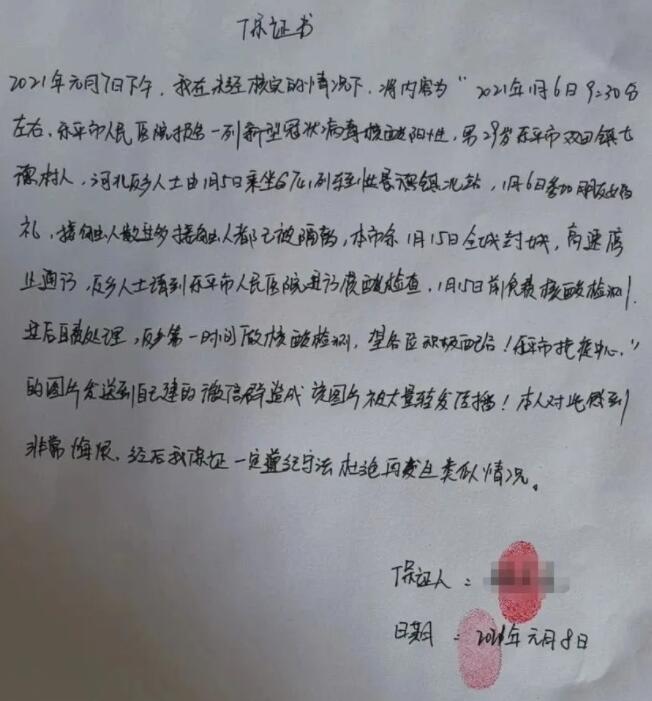 保证书
2021年元月7日下午,我在未经核实的情况下,将内容为“2021年1月6日9:30分
左右,乐平市人民医院报告一列新型冠状病毒核酸阳性,男29岁乐平市双田镇
村人,河北返乡人士由1月5日乘坐G741列车到景德镇北站,1月6日参加朋友婚
礼,接触人数过多接触人都已被隔离,本市余1月15日全城封城,高速停
止通行,返乡人士请到乐平市人民医院进行核酸检查,1月15日前免费核酸检测,
过后自费处理,返乡第一时间做核酸检测,望各位积极配合!乐平市控中心,”
的图片发送到自己建的微信群造成该图片被大量转发传播!本人对此感到
非常悔恨、经后我保证一定遵纪守法杜绝再发生类似情况。
保证人:
日期:2021年元月8日